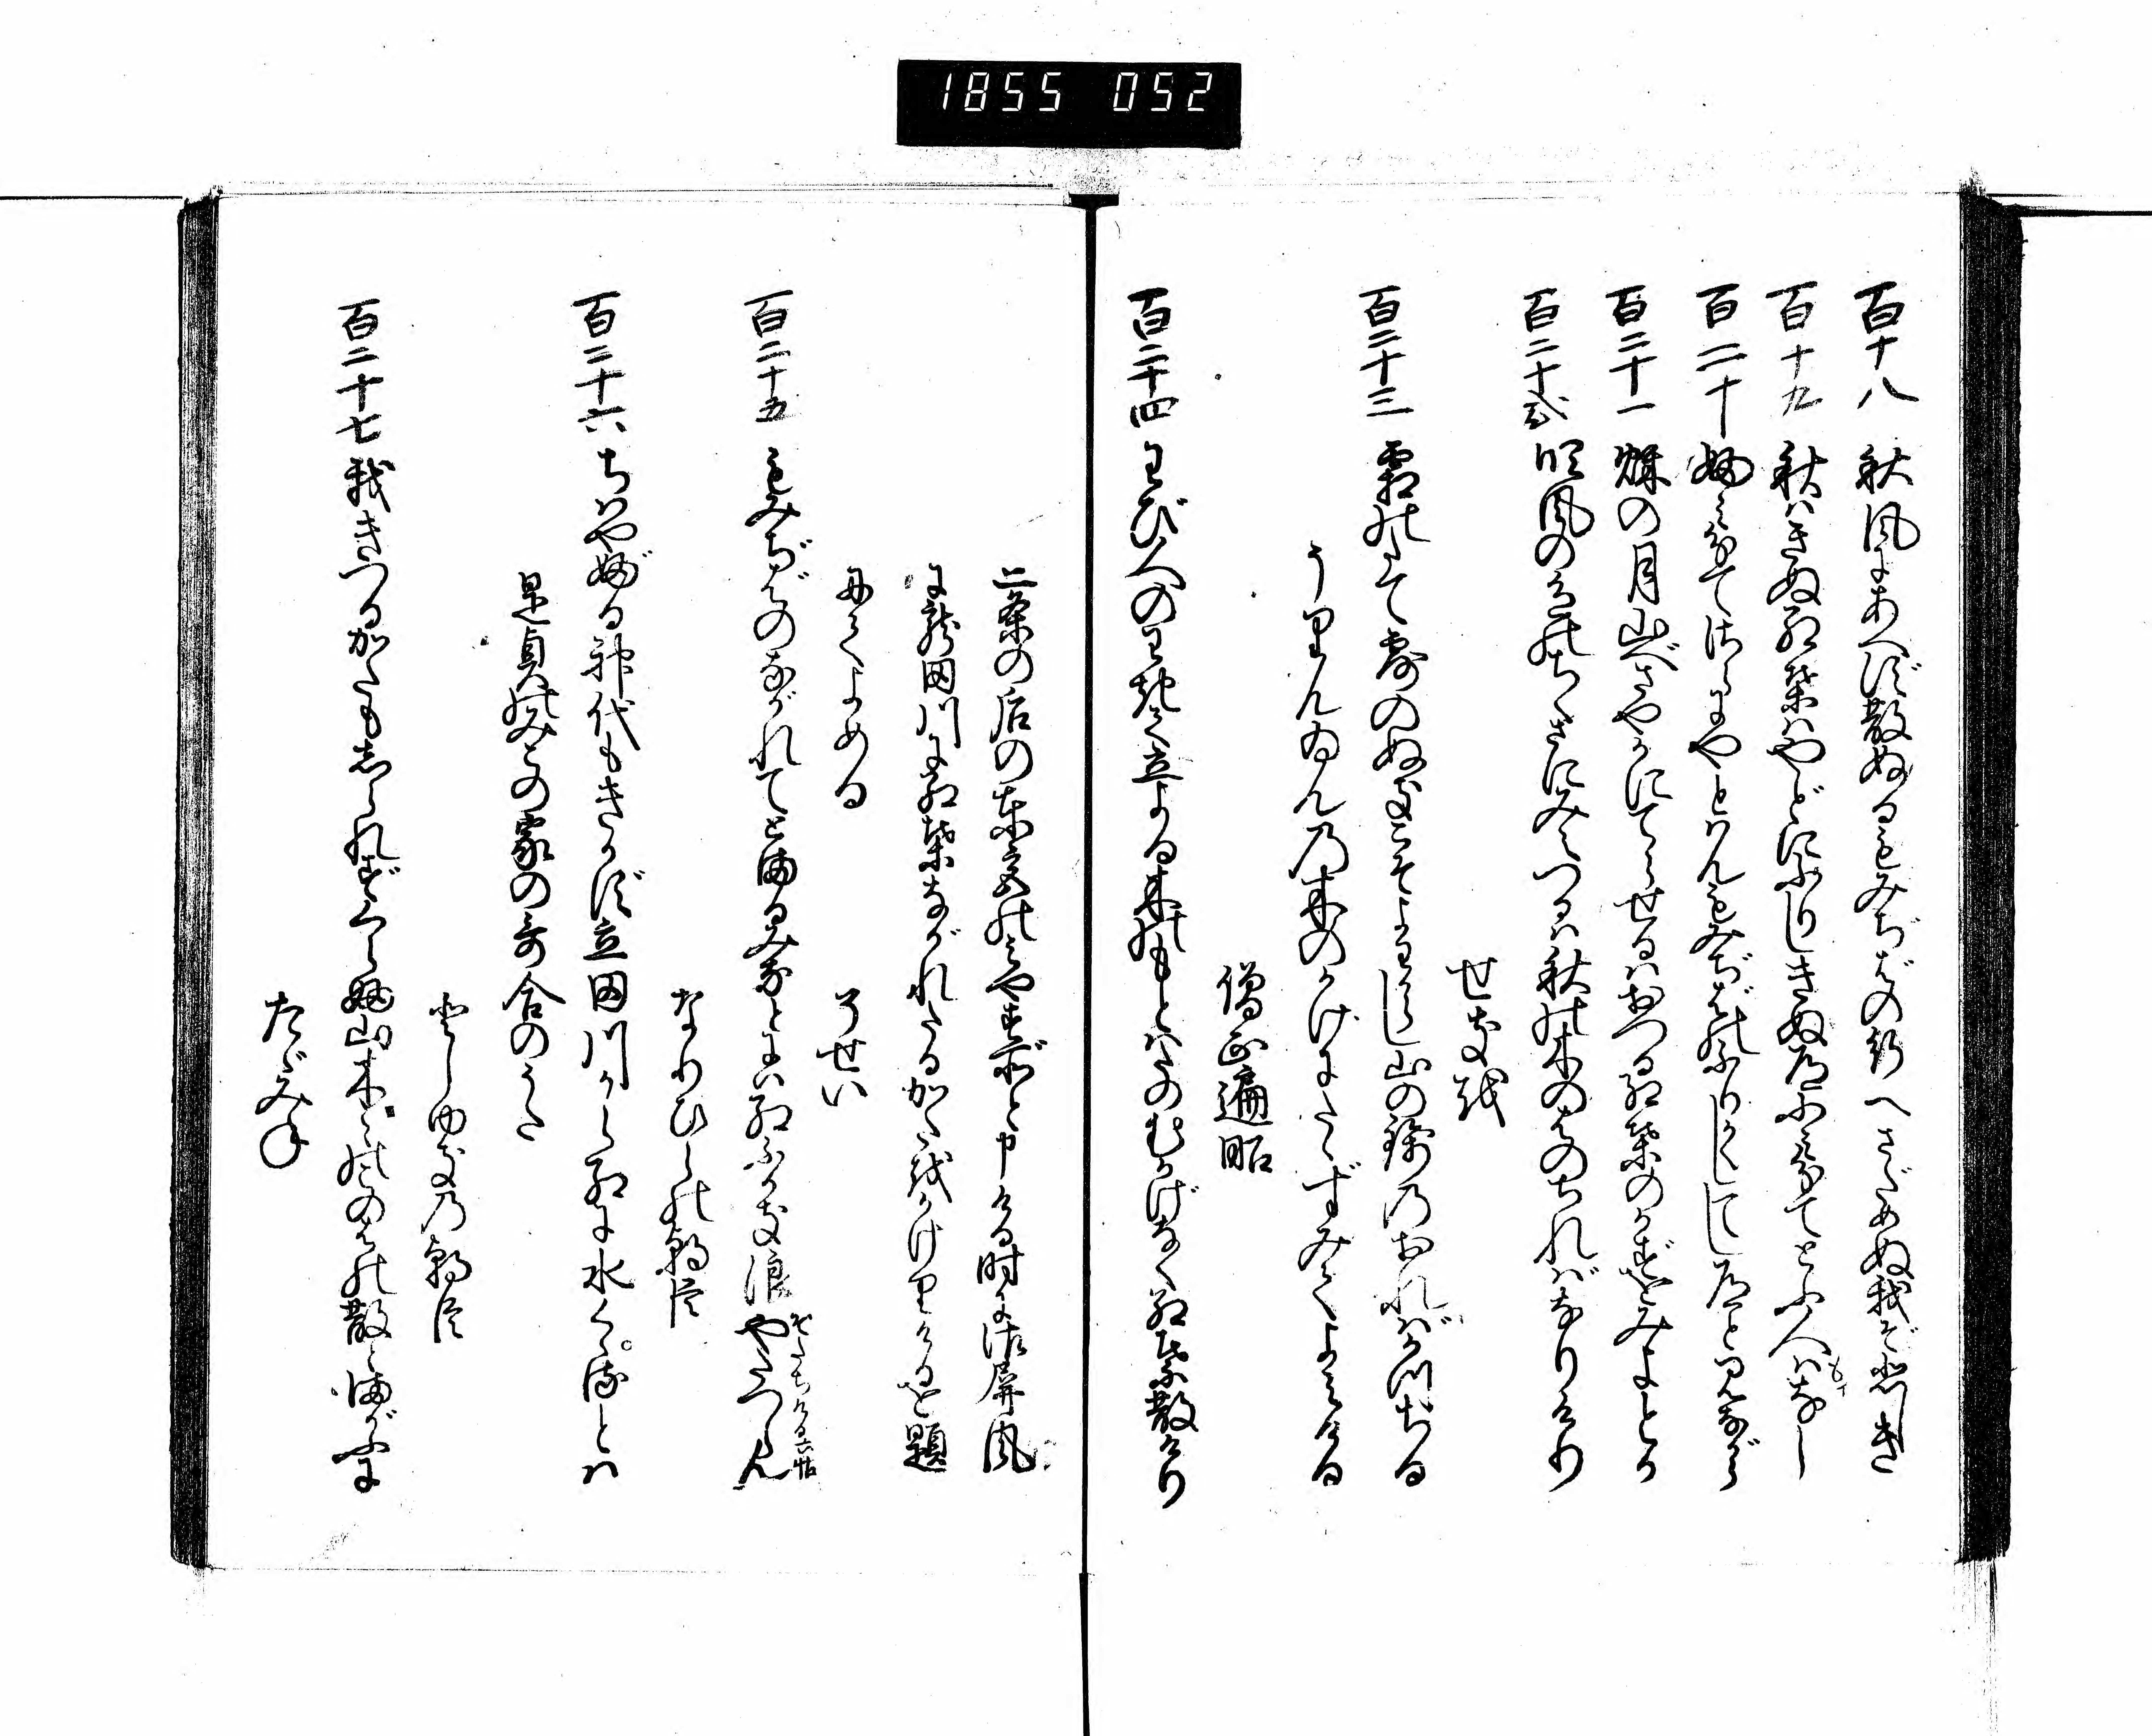 1855 052
百十八 秋風にあへず散ぬるもみぢばの行へさだめぬ我ぞ悲しき
百十九 秋はきぬ紅葉はやどにふりしきぬ道ふみ分てとふ人はなし
もイ
百二十 ふみ分てさらにやとはんもみぢばのふりかくしてし道と見ながら
百二十一 秋の月山べさやかにてらせるはおつる紅葉のかずをみよとか
百二十弐 吹風の色のちくさにみえつるは秋の木のはのちればなりけり
せきを
百二十三 霜のたて露のぬきこそよわからし山の錦のおればかつちる
うりんゐんの木のかげにたゝずみてよみける
僧正遍昭
百二十四 わび人のわきて立よる木のもとはたのむかげなく紅葉散けり
二条の后の東宮のみやす所と申ける時に御屏風
に龍田川に紅葉ながれたるかたをかけりけるを題
にてよめる
そせい
百二十五 もみぢばのながれてとまるみなとには紅ふかき浪やたつらん
ぞたちける六帖
なりひらの朝臣
百二十六 ちはやぶる神代もきかず立田川からくれなゐに水くゝるとは
是貞のみこの家の哥合のうた
としゆきの朝臣
百二十七 我きつるかたもしられずくらぶ山木々のこのはの散とまがふに
たゞみね